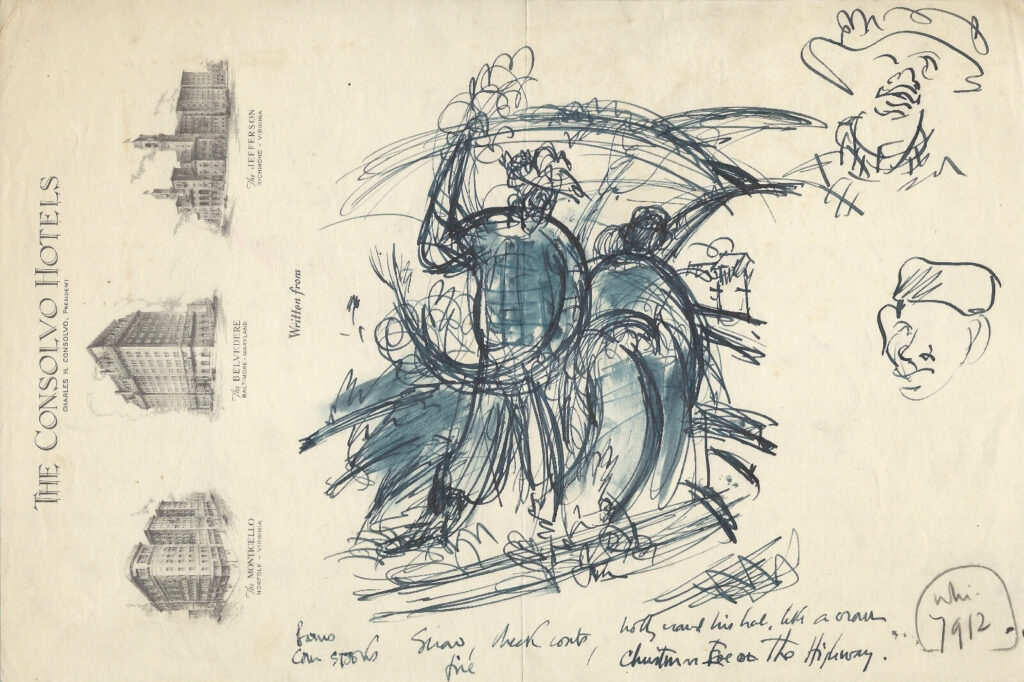 THE CONSOLVO HOTELS
CHARLES H. CONSOLVO, PRESIDENT
The JEFFERSON
RICHMOND - VIRGINIA
The BELVEDERE
BALTIMORE - MARYLAND
The MONTICELLO
NORFOLK - VIRGINIA
Written from
Snow, check coats, holly round his hat, like a
fire, on The Highway.
whi.
7912